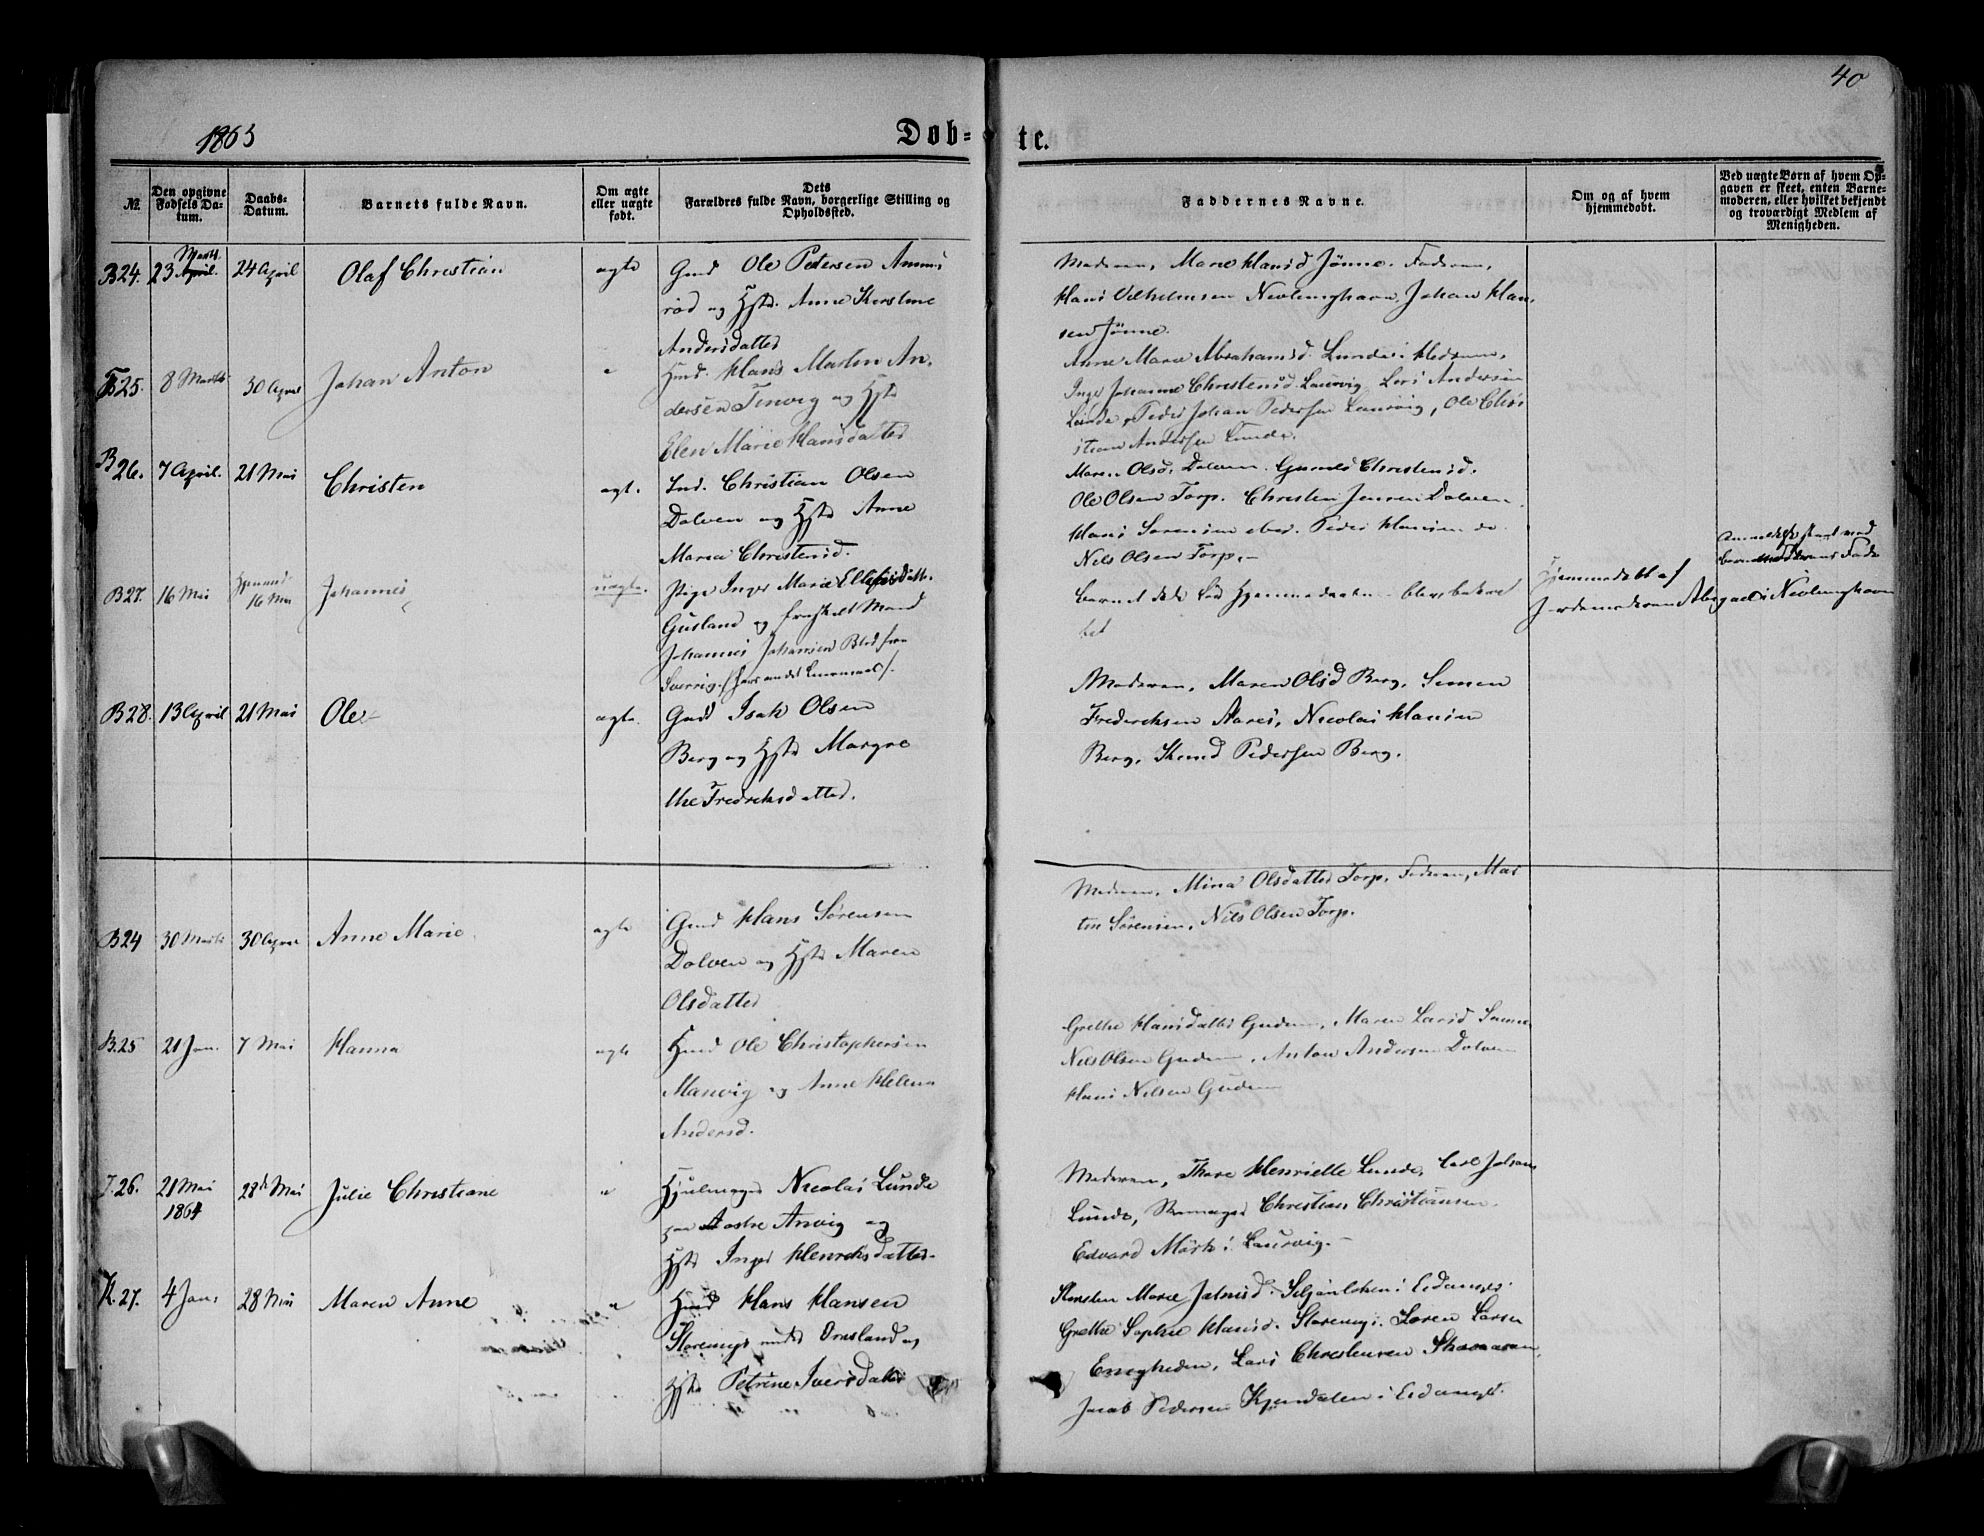 40
1865
Døb-
te.
№
Den opgivne Fødsels Da-
tum.
Daabs-
Datum.
Barnets fulde Navn.
Om ægte
eller uægte
født.
Dets
Forældres fulde Navn, borgerlige Stilling og
Opholdssted.
Faddernes Navne.
Om og af hvem
hjemmedøbt.
Ved uægte Børn af hvem Op-
gaven er skeet, enten Barne-
moderen, eller hvilket bekjendt
og troværdigt Medlem af
Menigheden.
B24. 23 Marts April. 24 April Olaf Christian ægte Gmd Ole Petersen Ammi
rød og Hstr. Anne Kirstine
Andersdatter
Moderen, Maren Hansd Jønne. Faderen,
Hans Vilhelmsen Nevlunghavn, Johan Han
sen Jønne.
25. 8 Marts 30 April Johan Anton " Hmd. Hans Martin An
dersen Tenvig og Hstr
Elen Marie Hansdatter
Anne Marie Abrahamsd. Lunde i Hedrum,
Inger Johanne Christensd. Laurvig, Lars Andersen
Lunde, Peder Johan Pedersen Laurvig, Ole Chri
stian Andersen Lunde.
B26. 7 April. 21 Mai Christen ægt. Ind. Christian Olsen
Dolven og Hstr Anne
Maria Christensd.
Maren Olsd. Dolven. Christensd.
Ole Olsen Torp. Christen Jensen Dolven
Hans Sørensen Peder Hansen do.
Nils Olsen Torp.
B27. 16 Mai 16 Mai Johannes uægte. Pige Inger Marie Ellefsdatt.
Gusland og fraskilt Mand
Johannes Johansen fra
Sverrig.
Barnet døde før
tet
Hjemmedøbt af
Jordemoderen Abigael i Nevlunghavn
B28. 13 April 21 Mai Ole ægte. Gmd Isak Olsen
Berg og Hstr Margre
the Fredriksdatter.
Moderen, Maren Olsd Berg, Simen
Frederiksen Aares, Nicolai Hansen
Berg, Knud Pedersen Berg.
B24 30 Marts 30 April Anne Marie ægte Gmd Hans Sørensen
Dolven og Hstr Maren
Olsdatter
Moderen, Mina Olsdatter Torp, Faderen, Mar
tin Sørensen, Nils Olsen Torp.
B.25 21 Jan. 7 Mai Hanna ægte Hmd Ole Christophersen
Manvig og Anne Helene
Andersd.
Grethe Hansdatter Gudem, Maren Larsd
Nils Olsen Gudem, Anton Andersen Dolven
Hans Nilsen Gudem
26. 21 Mai
1864
28de Mai Julie Christiane " Hjulmager Nicolai Lunde
paa Østre Anvig og
Hstr Inger Henriksdatter.
Moderen, Thore Henriette Lunde, Carl Johan
Lunde, Christian Christiansen
Edvard Mörk i Laurvig.
K.27. 4 Jan. 28 Mai Maren Anne " Hmd Hans Hansen
under Omsland og
Hstr Petrine Iversdatter
Kirsten Marie i Eidanger
Grethe Sophie Hansd. Søren Larsen
Enigheden, Lars Christensen
Jacob Pedersen Kjendalen i Eidanger.